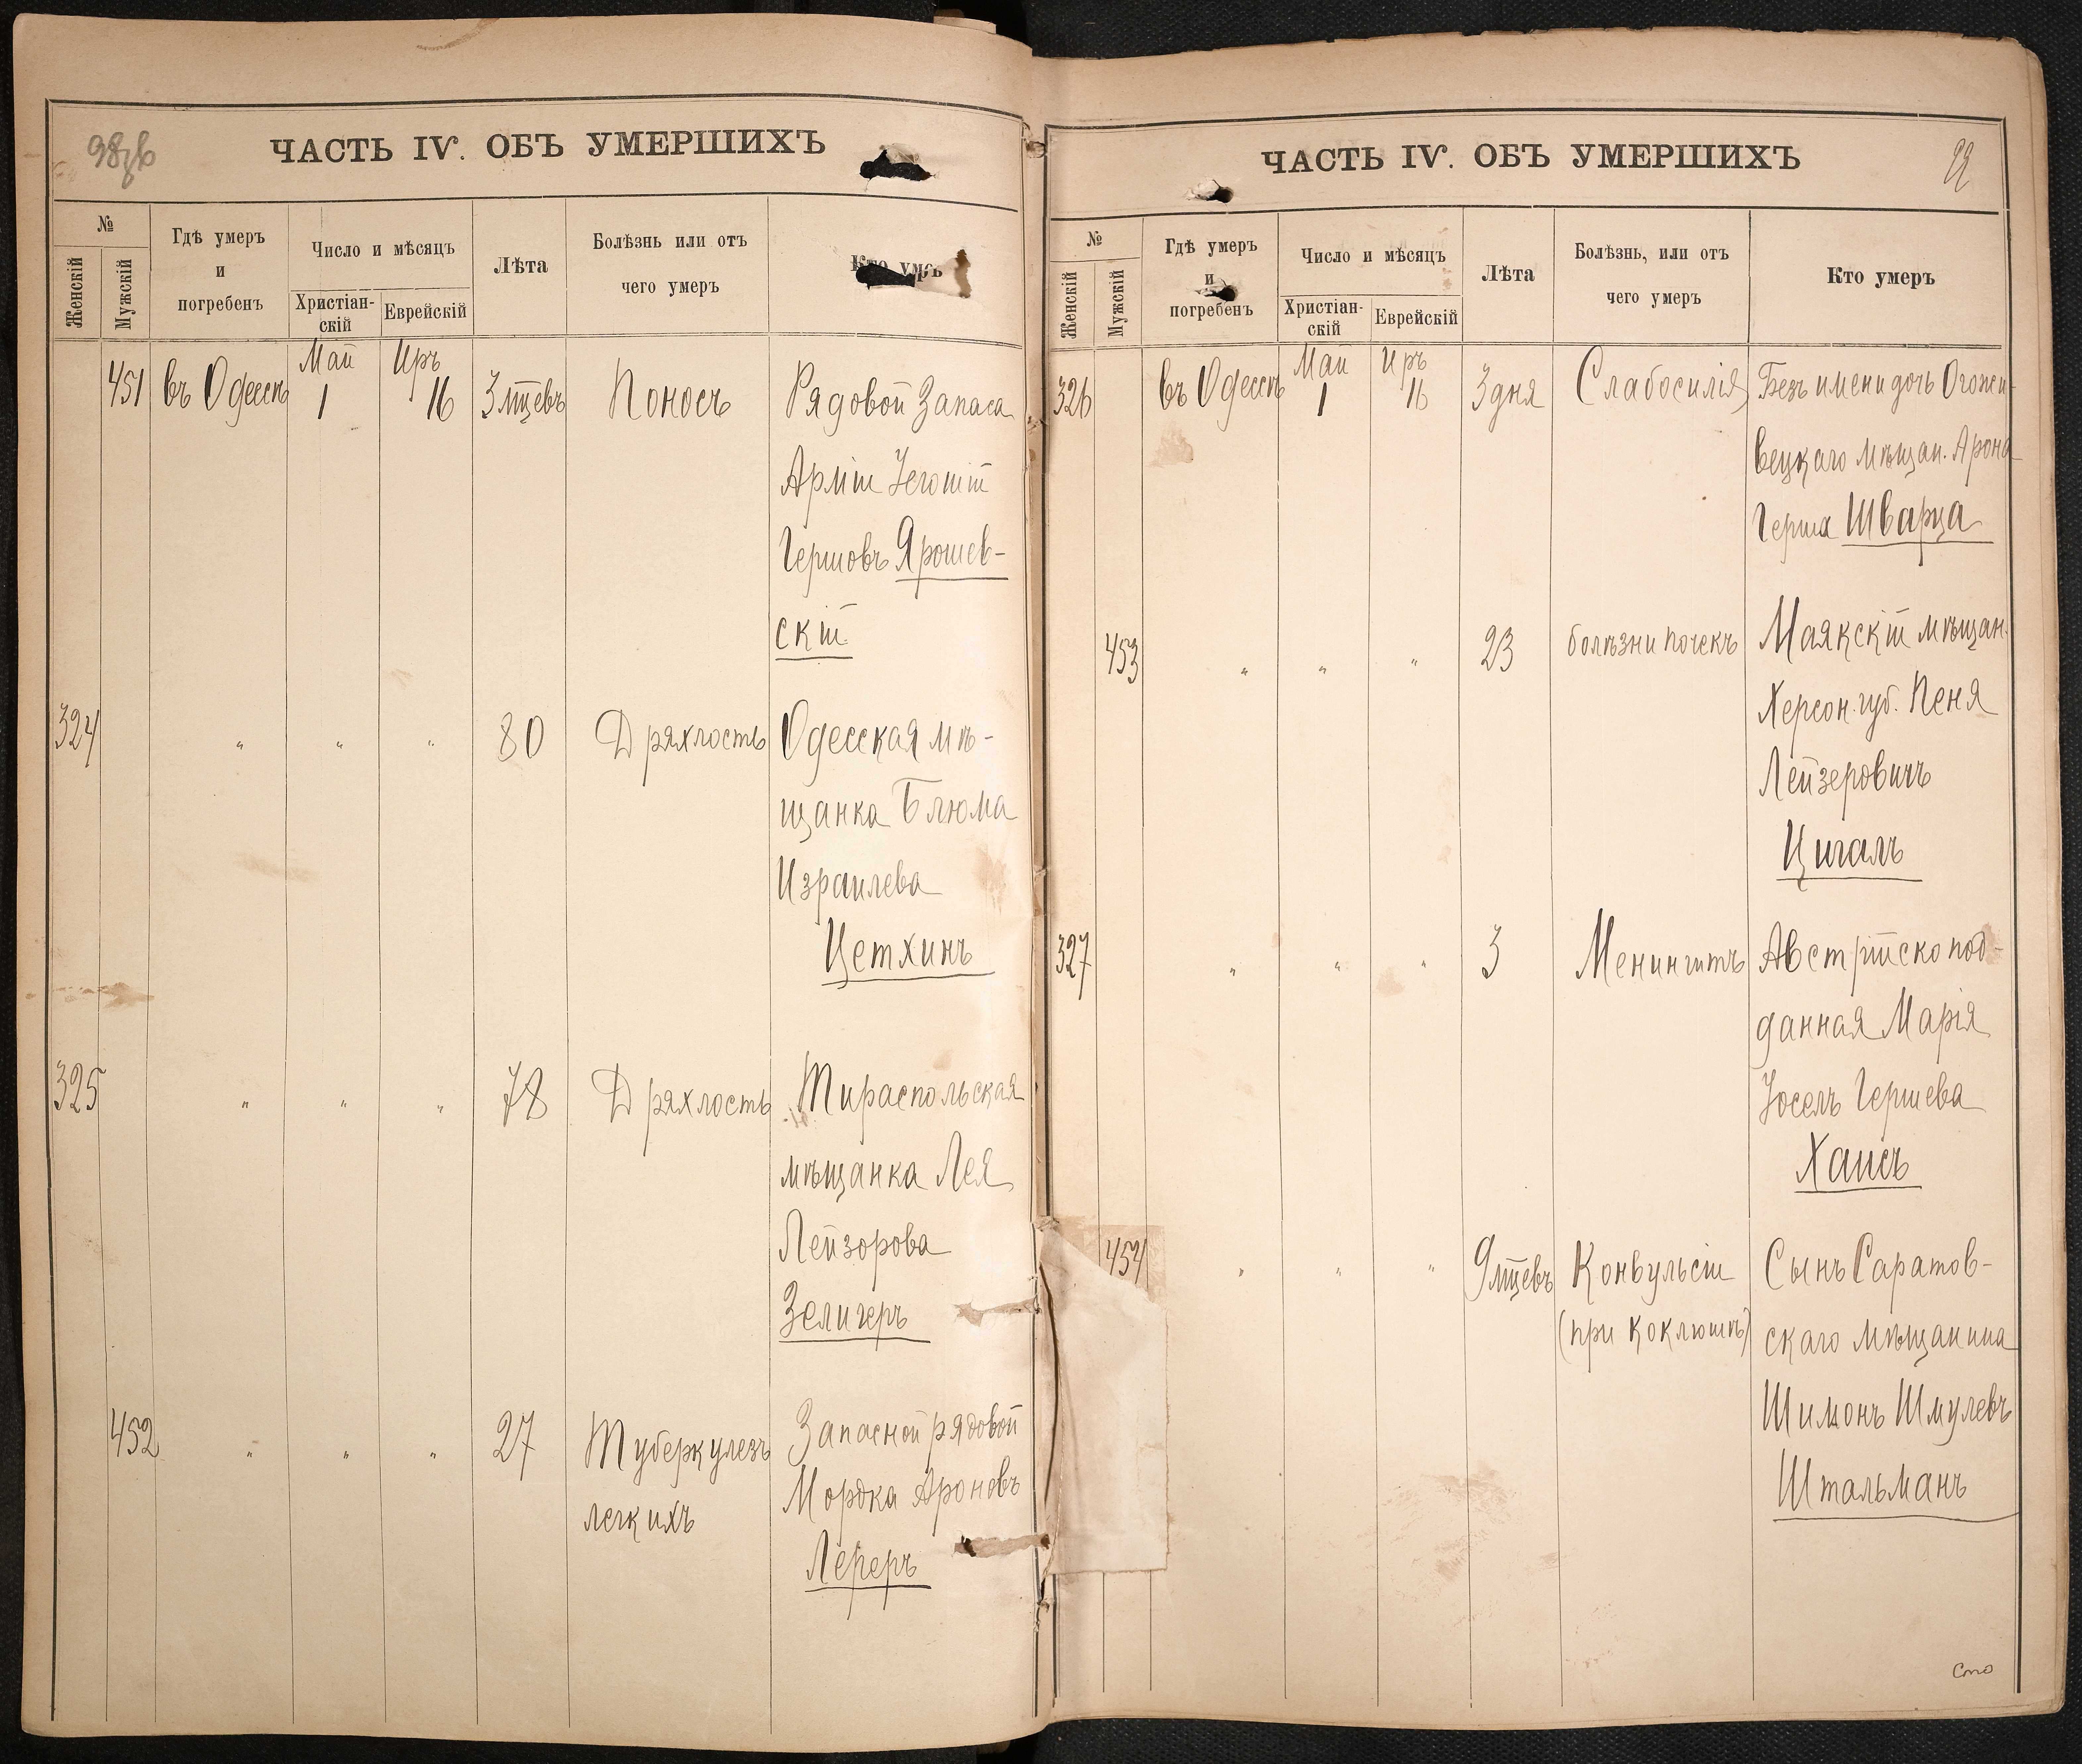 ЧАСТЬ IV. ОБЪ УМЕРШИХЪ
№
Женскій
Мужскій
Гдѣ умеръ
и
погребенъ
Число и мѣсяцъ
Христіан-
скій
Еврейскій
Лѣта
Болѣзнь или отъ
чего умеръ
Кто умеръ
Май Иръ
451 въ Одессѣ 1 16 3 мѣцевъ Поносъ Рядовой Запаса
Арміи
Гершовъ Ярошев-
скій
324 " " " 80 Дряхлость Одесская мѣ-
щанка Блюма
Израилева
Цетхинъ
325 " " " 78 Дряхлость Тираспольская
мѣщанка Лея
Лейзорова
Зелигеръ
452 " " " 27 Туберкулезъ Запасной рядовой
легкихъ Мордка Ароновъ
Лереръ
ЧАСТЬ IV. ОБЪ УМЕРШИХЪ
99
№
Женскій
Мужскій
Гдѣ умеръ
и
погребенъ
Число и мѣсяцъ
Христіан-
скій
Еврейскій
Лѣта
Болѣзнь, или отъ
чего умеръ
Кто умеръ
Май Иръ
326 въ Одессѣ 1 16 3 дня Слабосилія Безъ имени дочь
мѣщан. Арона
Герша Шварца
453 " " " 23 болѣзни почекъ Маякскій мѣщан.
Херсон. губ. Пеня
Лейзеровичъ
Цигалъ
327 " " " 3 Менингитъ Австрійско под-
данная Марія
Іосель Гершева
Хаисъ
454 " " " 9 мѣцевъ Конвульсіи Сынъ Саратов-
(при коклюшѣ) скаго мѣщанина
Шимонъ Шмулевъ
Штальманъ
Сто